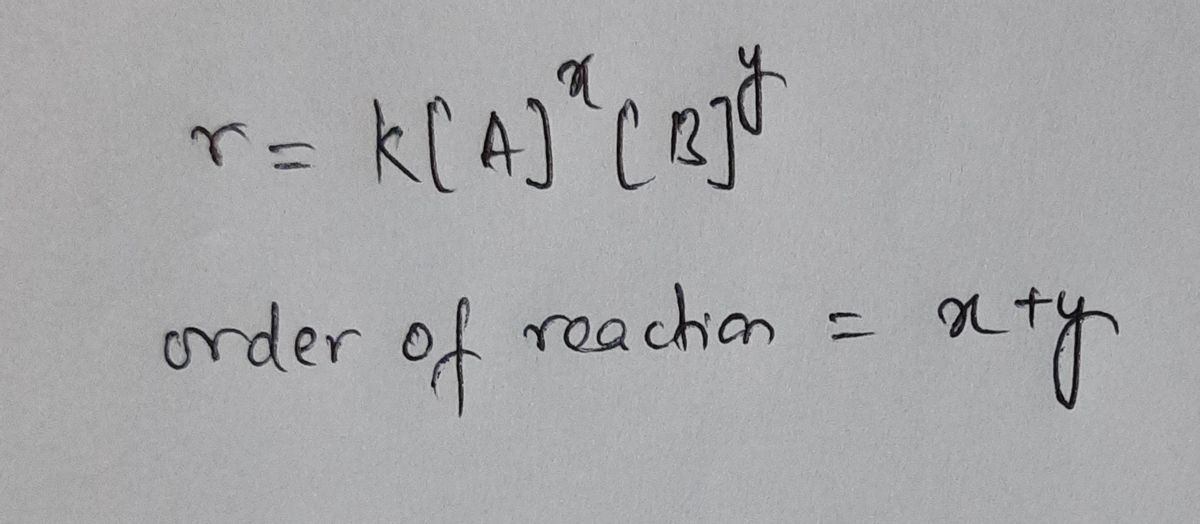 r = k[A]^x [B]^y
order of reaction = x+y